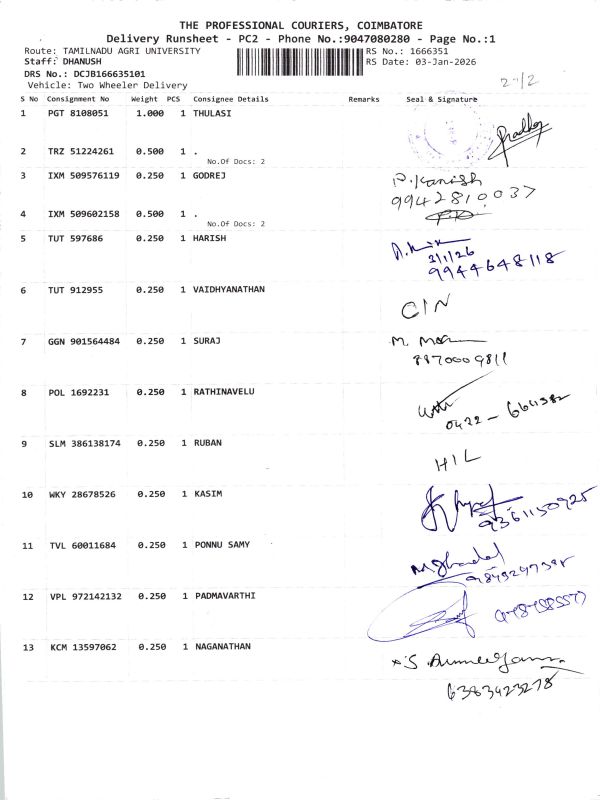 THE PROFESSIONAL COURIERS, COIMBATORE
Delivery Runsheet - PC2 - Phone No.:9047080280 - Page No.:1
Route: TAMILNADU AGRI UNIVERSITY RS No.: 1666351
Staff: DHANUSH RS Date: 03-Jan-2026
DRS No.: DCJB166635101
Vehicle: Two Wheeler Delivery
S No Consignment No Weight PCS Consignee Details Remarks Seal & Signature
1 PGT 8108051 1.000 1 THULASI
2 TRZ 51224261 0.500 1 .
No.Of Docs: 2
3 IXM 509576119 0.250 1 GODREJ P.Kanish
9942810037
4 IXM 509602158 0.500 1 .
No.Of Docs: 2
5 TUT 597686 0.250 1 HARISH
3/1/26
9944648118
6 TUT 912955 0.250 1 VAIDHYANATHAN CIN
7 GGN 901564484 0.250 1 SURAJ M.
8870009811
8 POL 1692231 0.250 1 RATHINAVELU
0422 -
9 SLM 386138174 0.250 1 RUBAN HIL
10 WKY 28678526 0.250 1 KASIM
9361150925
11 TVL 60011684 0.250 1 PONNU SAMY
12 VPL 972142132 0.250 1 PADMAVARTHI
13 KCM 13597062 0.250 1 NAGANATHAN
6383423278